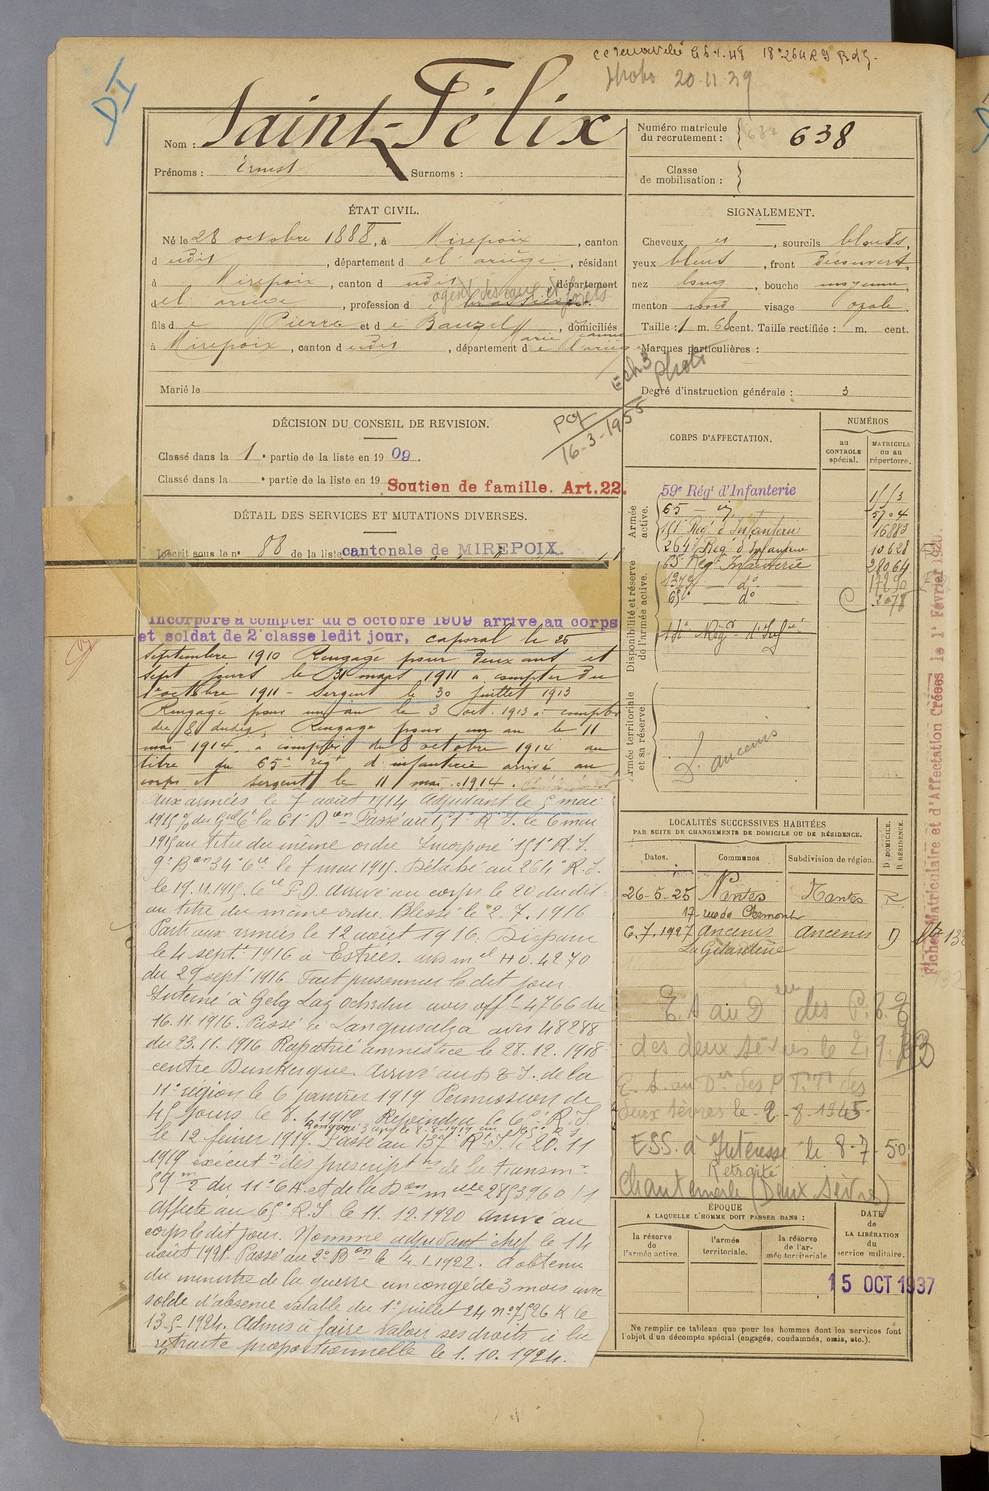 20.11.39
DI
Nom : Saint-Félix
Prénoms : Ernest Surnoms :
Numéro matricule du recrutement : 638
Classe de mobilisation :
ÉTAT CIVIL.
Né le 28 octobre 1888, à Mirepoix, canton
dudit, département de l'ariège, résidant
à Mirepoix, canton dudit, département
de l'ariège, profession d
fils de Pierre et de Bauzil Marie, domiciliés
à Mirepoix, canton dudit, département de l'ariège
Marié le
SIGNALEMENT.
Cheveux et, sourcils blonds,
yeux bleus, front découvert,
nez long, bouche moyenne,
menton rond visage ovale.
Taille : 1 m. 68 cent. Taille rectifiée : m. cent.
Marques particulières :
Photo
Degré d'instruction générale : 3
16-3-1955
DÉCISION DU CONSEIL DE REVISION.
Classé dans la 1e partie de la liste en 1909.
Classé dans la e partie de la liste en 19
Soutien de famille. Art.22.
DÉTAIL DES SERVICES ET MUTATIONS DIVERSES.
Inscrit sous le no 88 de la liste cantonale de MIREPOIX.
Incorporé à compter du 8 octobre 1909 arrivé au corps
et soldat de 2e classe ledit jour, caporal le 25
septembre 1910 Rengagé pour deux ans et
sept jours le 31 mars 1911 à compter du
1er octobre 1911 - Sergent le 30 juillet 1913
Rengagé pour un an le 3 oct. 1913 à compter
du 8 dudit. Rengagé pour un an le 11
mai 1914 à compter du 8 octobre 1914 au
titre du 65e régt d'infanterie arrivé au
corps et sergent le 11 mai 1914.
aux armées le 7 août 1914 adjudant le 5 mai
1915 Passé au 151e R.I. le 6 mai
1915 au titre du même ordre Incorporé 151e R.I.
9e Bon 34e Cie le 7 mai 1915. Détaché au 264e R.I.
le 19.11.1915. arrivé au corps le 20 dudit
au titre du même ordre. Blessé le 2.7.1916
Parti aux armées le 12 août 1916. Disparu
le 4 septe 1916 à Estrées. avis mel HO.4270
du 29 sept 1916. Fait prisonnier le dit jour
Interné à avis off - 4766 du
16.11.1916. Passé à Langensalza avis 48288
du 23.11.1916 Rapatrié armistice le 28.12.1918
centre Dunkerque. arrivé au D.I. de la
11e région le 6 janvier 1919 Permission de
45 jours Rejoindre le 65e R.I.
le 12 février 1919. Passé au 137e R.I. le 20.11
1919 exécution des prescriptions de la transmon
du 11e C.A. et de la Don mlle 2853960/1
Affecté au 65e R.I. le 11.12.1920 arrivé au
corps le dit jour. Nommé adjudant chef le 14
août 1921. Passé au 2e Bon le 4.1.1922. a obtenu
du ministre de la guerre un congé de 3 mois avec
solde d'absence valable du 1er juillet 24
13.5.1924. Admis à faire valoir ses droits à la
retraite proportionnelle le 1.10.1924.
CORPS D'AFFECTATION.
NUMÉROS
au CONTRÔLE spécial.
MATRICULE ou au répertoire.
Armée active.
59e Régt d'Infanterie
65 - do 5704
151e Regt d'Infanterie 16883
264e Regt d'Infanterie 10628
Disponibilité et réserve de l'armée active.
65 Regt Infanterie 28064
137e do
65e do 2078
Armée territoriale et sa réserve
D. ancenis
LOCALITÉS SUCCESSIVES HABITÉES
PAR SUITE DE CHANGEMENTS DE DOMICILE OU DE RÉSIDENCE.
Dates. Communes Subdivision de région.
D. DOMICILE. R. RÉSIDENCE.
26-5-25 Nantes Nantes R
17 rue de Clermont
6.7.1927 Ancenis Ancenis D
des deux Sèvres le 2.9.
deux sèvres le
Retraité
Chantemerle (Deux Sèvres)
ÉPOQUE
A LAQUELLE L'HOMME DOIT PASSER DANS :
la réserve de l'armée active.
l'armée territoriale.
la réserve de l'armée territoriale.
DATE de LA LIBÉRATION du service militaire.
15 OCT 1937
Ne remplir ce tableau que pour les hommes dont les services font
l'objet d'un décompte spécial (engagés, condamnés, omis, etc.).
Fiches Matriculaire et d'Affectation Créées le 1er Février 1926.